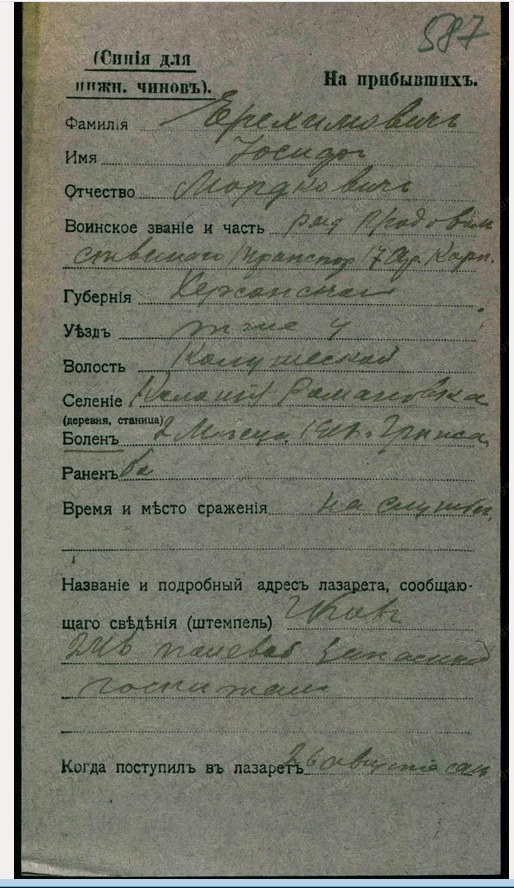 587
(Синія для
нижн. чиновъ).
На прибывшихъ.
Фамилія Ерехимовичъ
Имя Іосифъ
Отчество Мордковичъ
Воинское званіе и часть ряд Продоволь
ственного транспор 17 Арм. Корп.
Губернія Херсонская
Уѣздъ тоже у
Волость
Селеніе Колонія Романовка
(деревня, станица)
Боленъ
Раненъ
Время и мѣсто сраженія на службѣ
Названіе и подробный адресъ лазарета, сообщаю-
щаго свѣдѣнія (штемпель)
полевой запасной
госпиталь
Когда поступилъ въ лазаретъ 26 августа